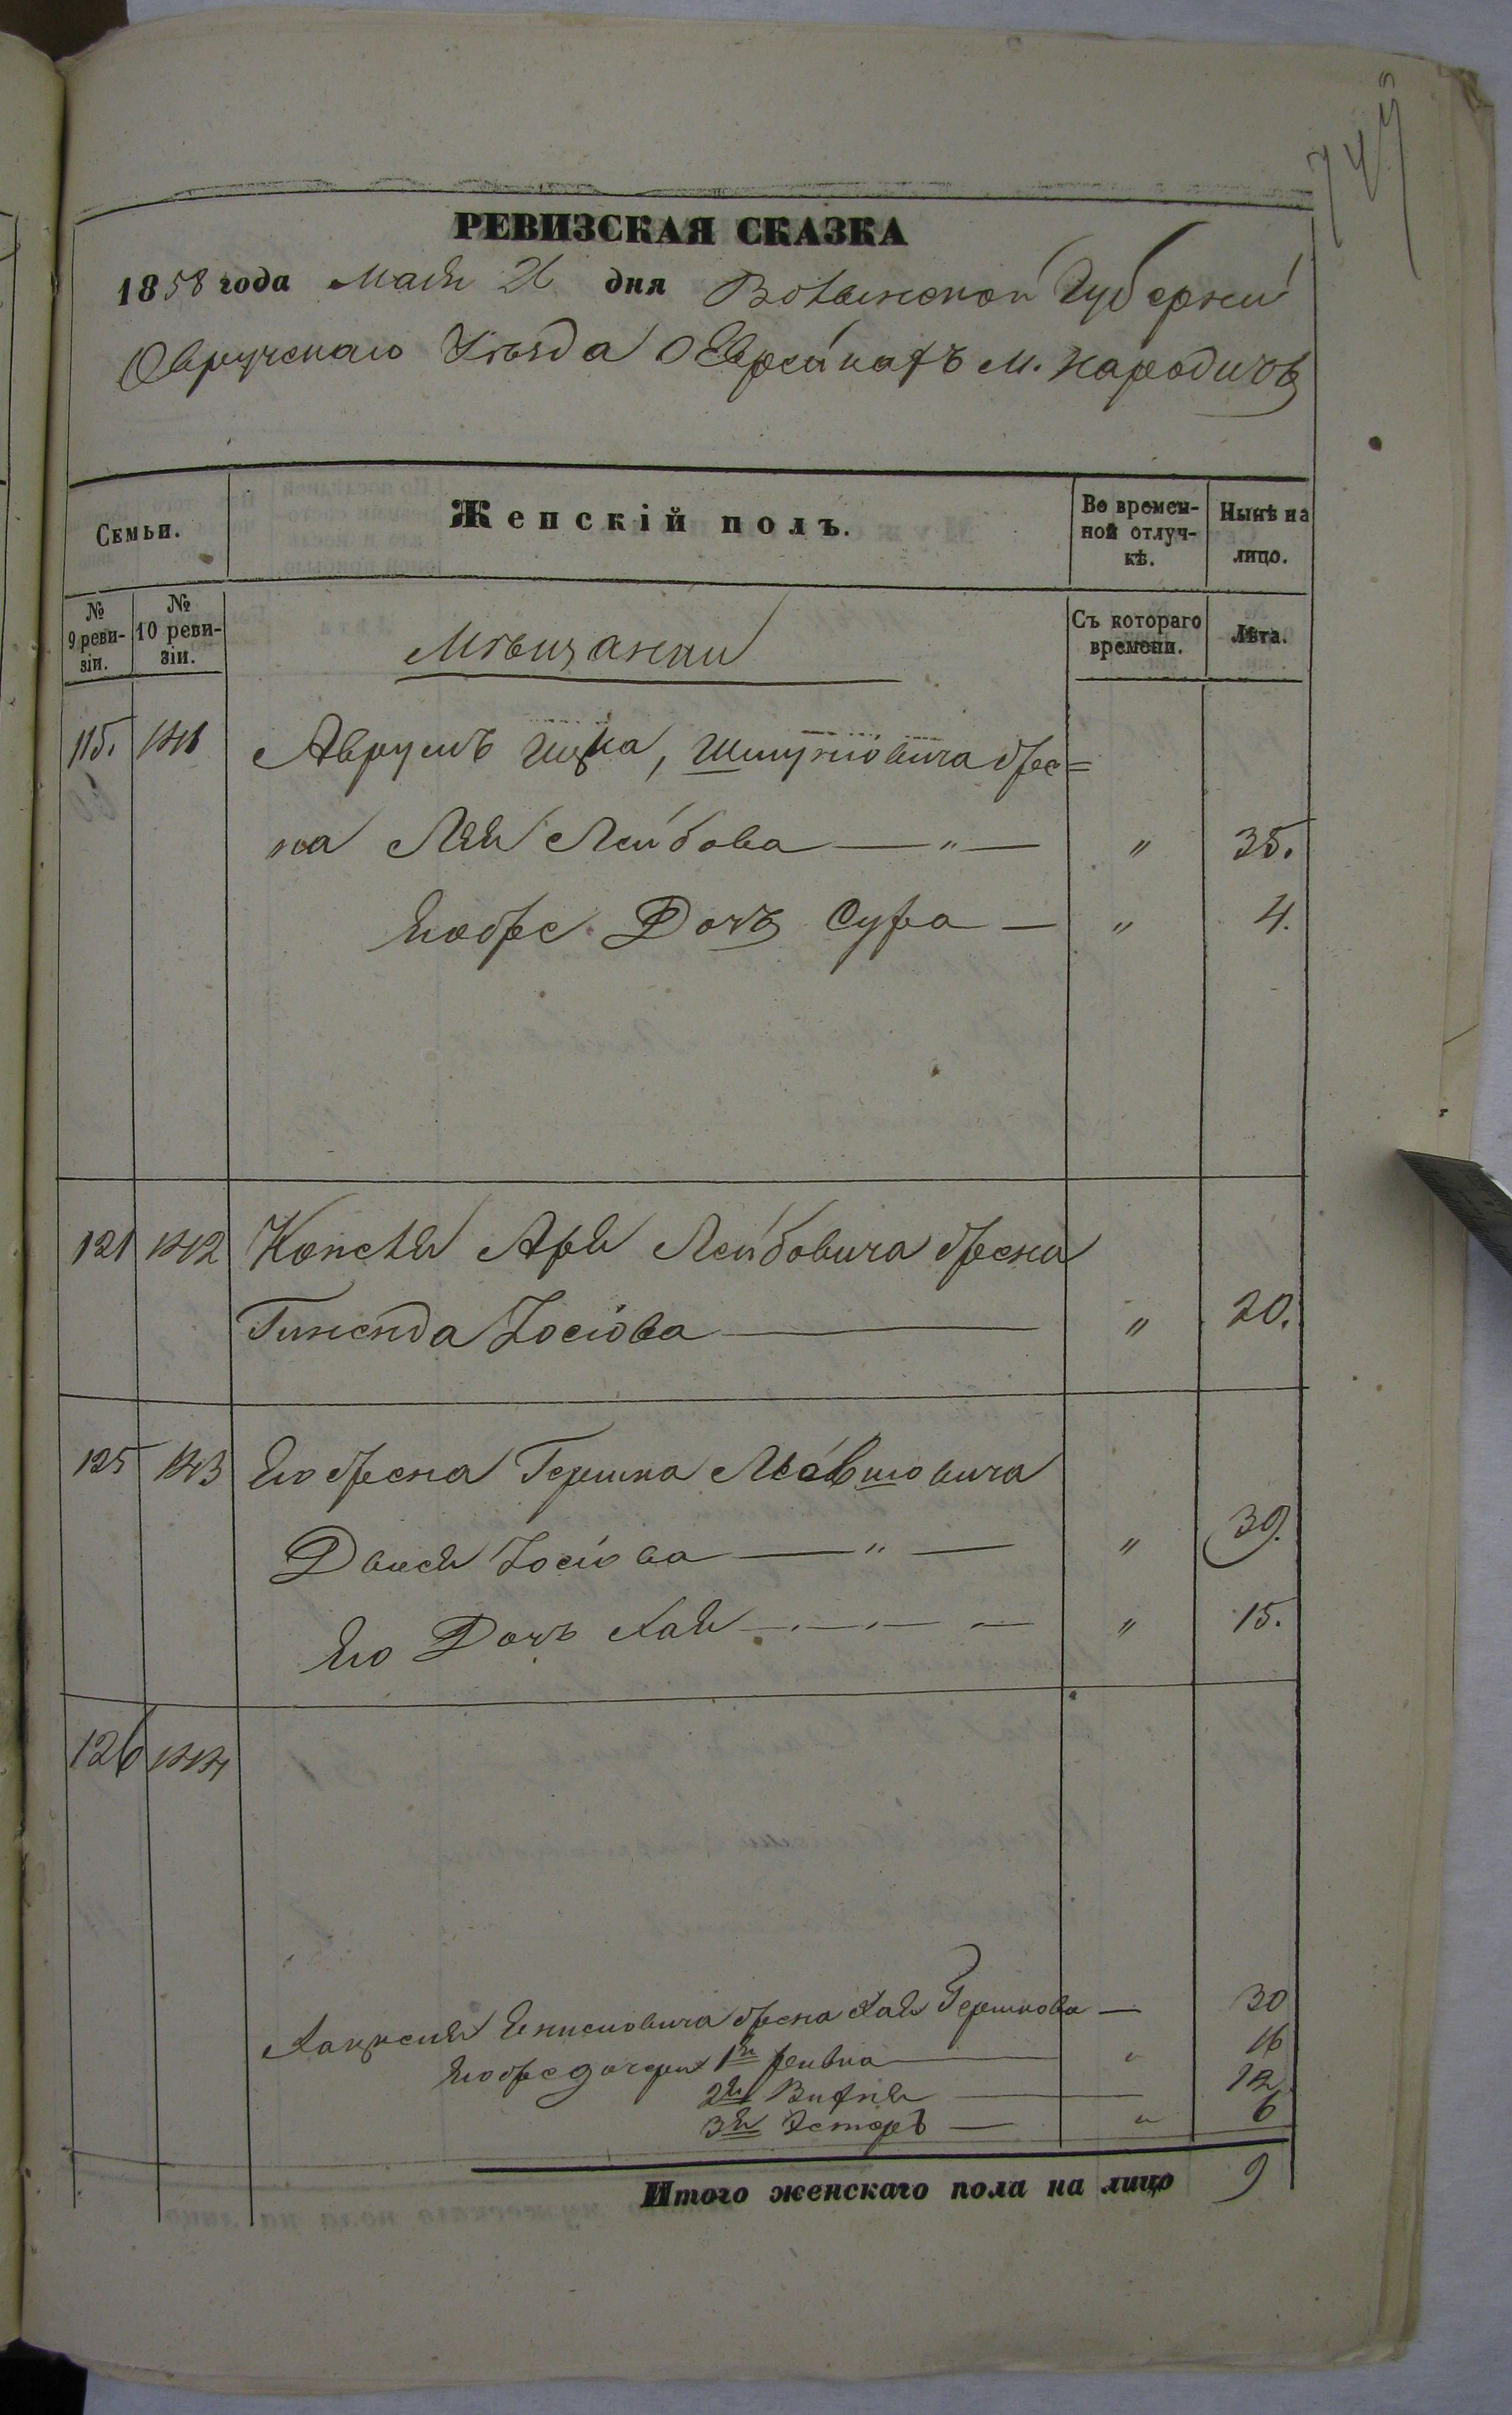 РЕВИЗСКАЯ СКАЗКА
1858 года Мая 26 дня Волынской Губерніи
Овручскаго Уѣзда О Евреяхъ м. Народичъ
Семьи.
Женскій полъ.
Во времен-
ной отлуч-
кѣ.
Нынѣ на
лицо.
№
9 реви-
зіи.
№
10 реви-
зіи.
Мѣщанки
Съ котораго
времени.
Лѣта.
115. 141
Аврумъ Ицка, Шмулiовича жe=
на Лея Лейбова — " — " 35.
Его же Дочь Сура — " 4.
121 142 Арія Лейбовича жена
Іосіова — " 20.
125 143 Его жена Гершка Мовшовича
Двося Іосіова — " — " 39.
Его Дочь Хая — " — " — " 15.
126 144
жена Хая Гершкова — 30
Его же дочери 1я Ривка — " 16
2я — 12
3я Эстеръ — " 6
Итого женскаго пола на лицо 9